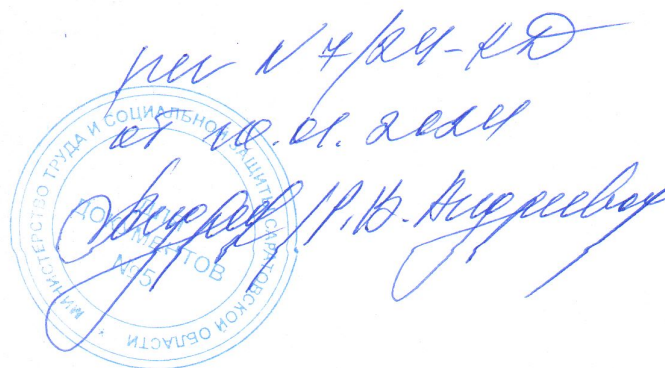 рег N 7/24-КД
от 10.01.2024
/Р.В. Андреева/
МИНИСТЕРСТВО ТРУДА И СОЦИАЛЬНОЙ ЗАЩИТЫ САРАТОВСКОЙ ОБЛАСТИ *
ДОКУМЕНТОВ
№5